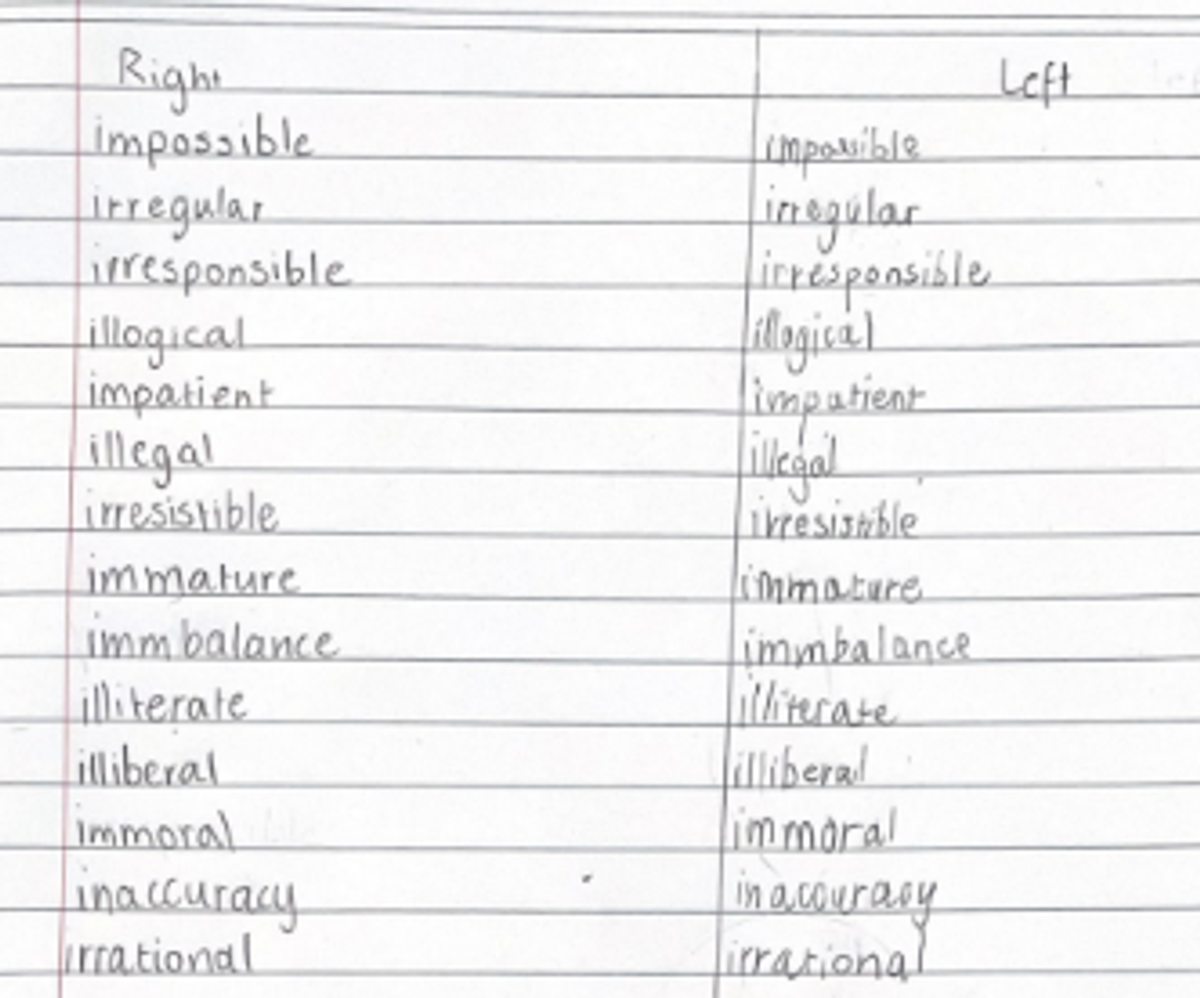 Right Left
impossible impossible
irregular irregular
irresponsible irresponsible
illogical illogical
impatient impatient
illegal illegal
irresistible irresistible
immature immature
immbalance immbalance
illiterate illiterate
illiberal illiberal
immoral immoral
inaccuracy inaccuracy
irrational irrational